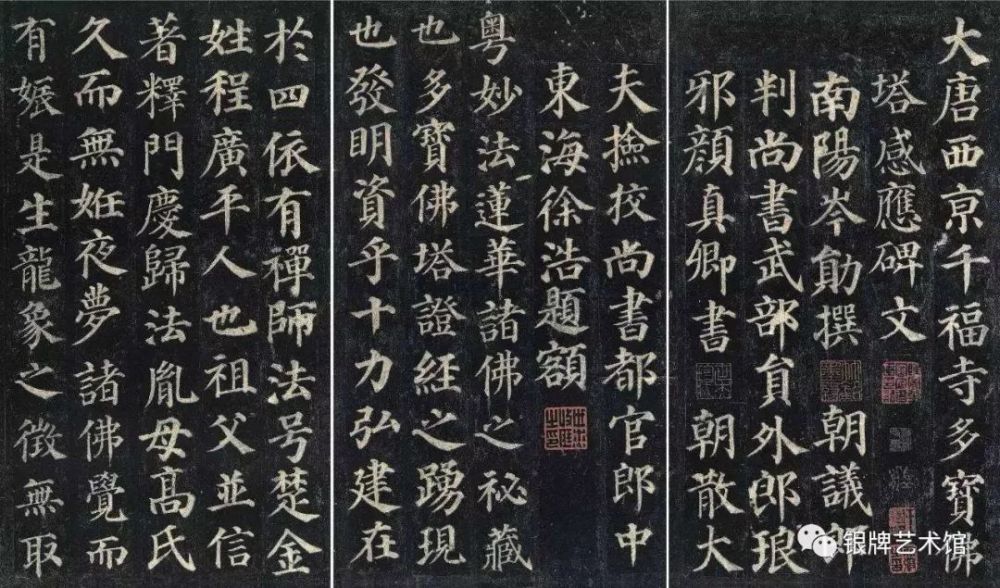 大唐西亰千福寺多寶佛
塔感應碑文
南陽岑勛撰 朝議郎
判尚書武部貟外郎琅
邪顏真卿書 朝散大
夫撿挍尚書都官郎中
東海徐浩題額
粵妙法蓮華諸佛之秘藏
也多寶佛塔證經之踴現
也發明資乎十力弘建在
於四依有禪師法号楚金
姓程廣平人也祖父並信
著釋門慶歸法胤母髙氏
久而無姙夜夢諸佛覺而
有娠是生龍象之徵無取
银牌艺术馆